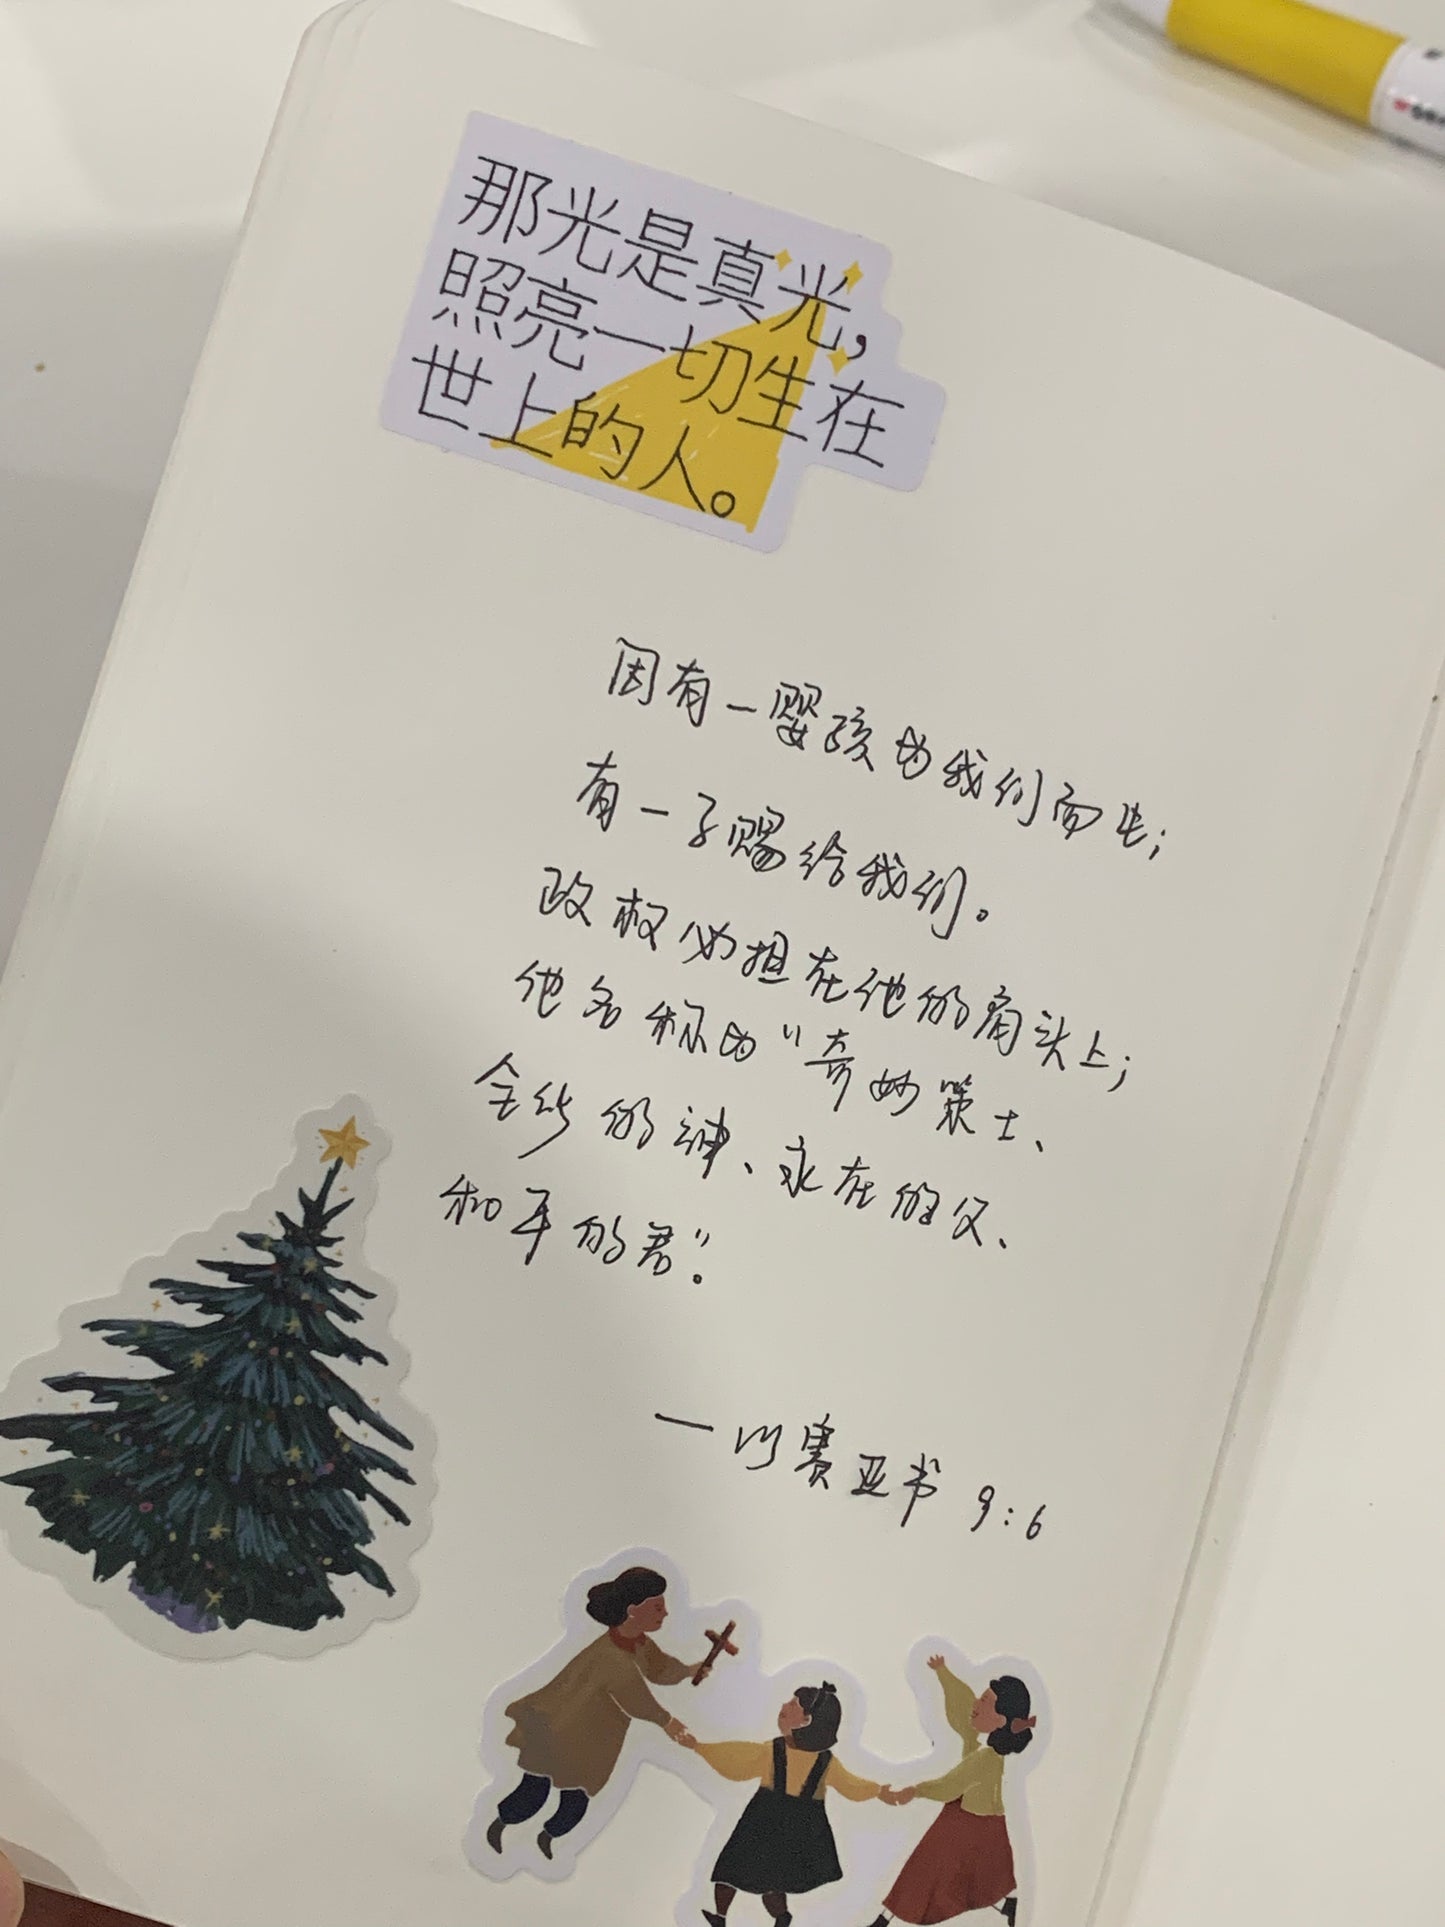 那光是真光，
照亮一切生在
世上的人。
因有一婴孩为我们而生；
有一子赐给我们。
政权必担在他的肩头上；
他名称为“奇妙策士、
全能的神、永在的父、
和平的君”。
—以赛亚书 9:6